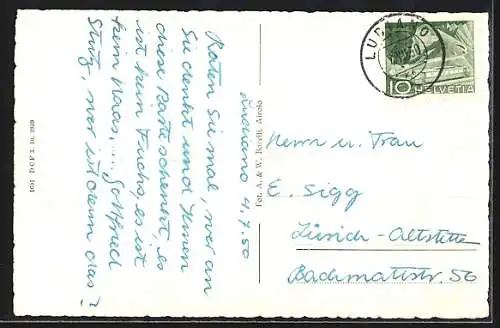 Lugano 4.7.50
Raten Sie mal, wer an
Sie denkt und Ihnen
diese Karte schenkt, es
ist kein Fuchs, es ist
kein Haas, .... Gottfried
Stutz, wer ist denn das?
1051 D.O.F.Z. 10. 1929
Fot. A. & W. Borelli, Airolo
LUGANO
10 HELVETIA
Herrn u. Frau
E. Sigg
Zürich-Altstetten
Bachmattstr. 56